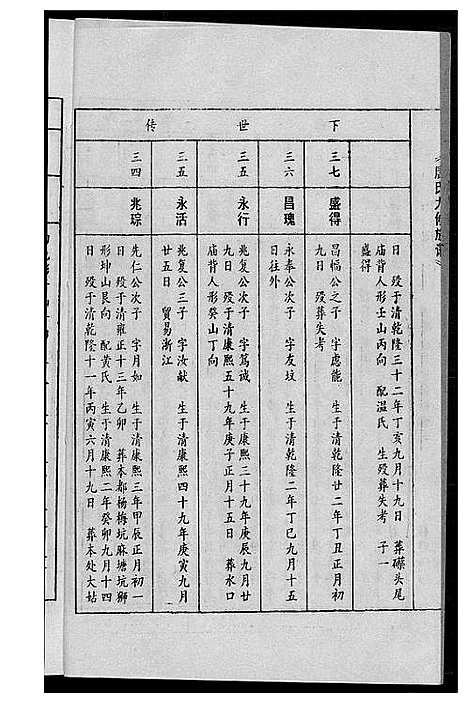 氏九修族谱
下世传
日 殁于清乾隆三十二年丁亥九月十九日 葬磜头尾
庙背人形壬山丙向 配温氏 生殁葬失考 子一
盛得
三七 盛得
昌幅公之子 字虑能 生于清乾隆廿二年丁丑正月初
九日 殁葬失考
三六 昌瑰
永奉公次子 字友坟 生于清乾隆二年丁巳九月十五
日往外
三五 永行
兆复公次子 字笃诚 生于康熙三十九年庚辰九月廿
九日 殁于清康熙五十九年庚子正月十五日 葬水口
庙背人形癸山丁向
三五 永活
兆复公三子 字汝献 生于清康熙四十九年庚寅九月
廿五日 贸易浙江
三四 兆琮
先仁公次子 字月如 生于清康熙三年甲辰正月初一
日 殁于清雍正十三年乙卯 葬本都杨梅坑麻塘坑狮
形坤山艮向 配黄氏 生于清康熙二年癸卯九月十四
日 殁于清乾隆十一年丙寅六月十九日 葬本处大姑